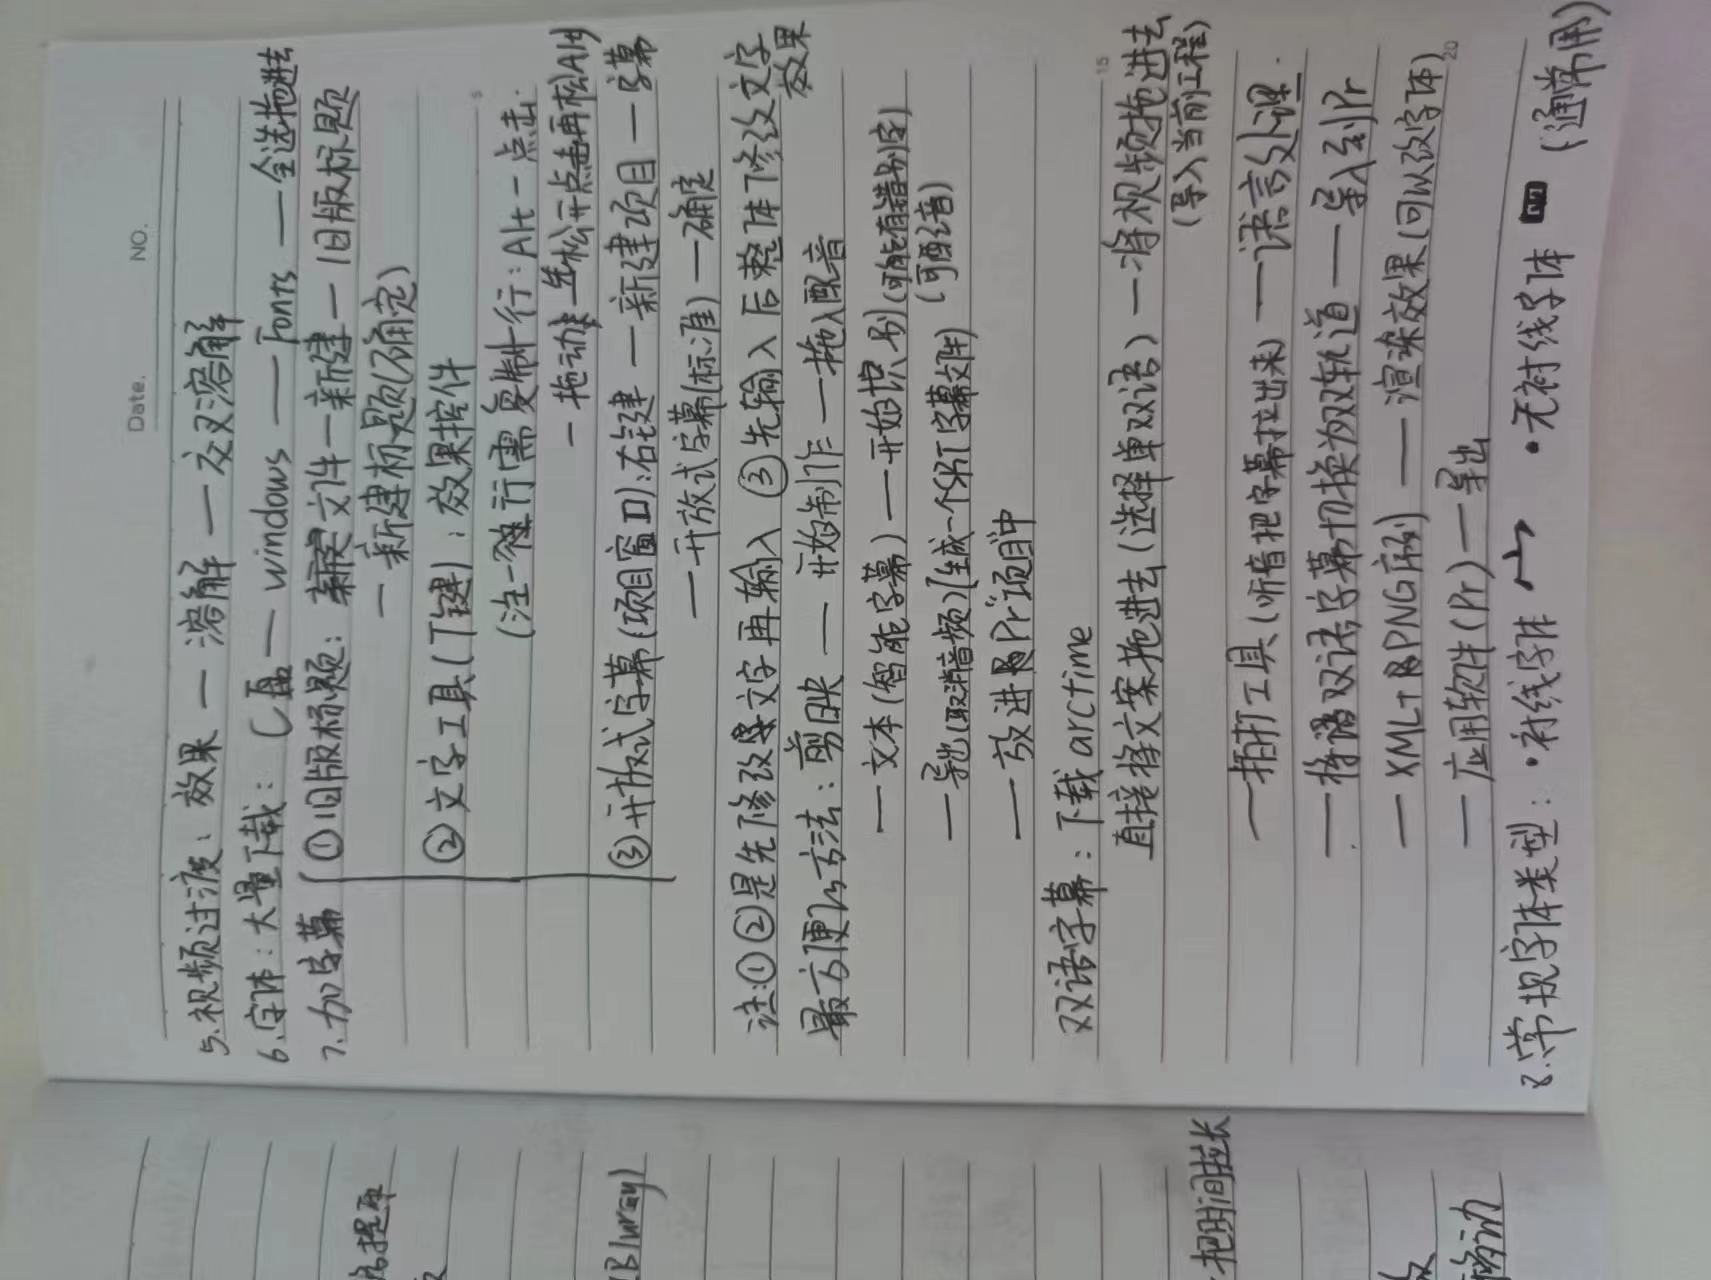 Date.
NO.
5.视频过渡：效果 — 溶解 — 交叉溶解
6.字体：大量下载：C盘 — windows — Fonts — 全选拖进去
7.加字幕 ①旧版标题：文件 — 新建 — 旧版标题
— 新建标题(确定)
②文字工具(T键)：效果控件
(注一行需复制一行：Alt — 点击
— 拖动 先松开点击再松Alt)
③开放式字幕(项目窗口)：右键 — 新建项目 — 字幕
— 开放式字幕(标准) — 确定
注：①②是先修改文字再输入 ③先输入后整体修改文字
效果
最方便的方法：剪映 — 开始制作 — 拖入配音
— 文本(智能字幕) — 开始识别(可能有错别字)
— 导出(取消音频)[生成一个SRT字幕文件] (可配音)
— 放进Pr项目中
双语字幕：下载 arctime
直接将文案拖进去(选择单双语) — 将视频拖进去
(导入当前工程)
— 拍打工具(听音把字幕拉出来) — 语言处理
— 将双语字幕切换为双轨道 — 导入到Pr
— XML+PNG序列 — 渲染效果(可以改字体)
— 应用软件(Pr) — 导出
8.常规字体类型：·衬线字体 ·无衬线字体 (通常用)
5
15
20
(Bluray)
把时间拉长